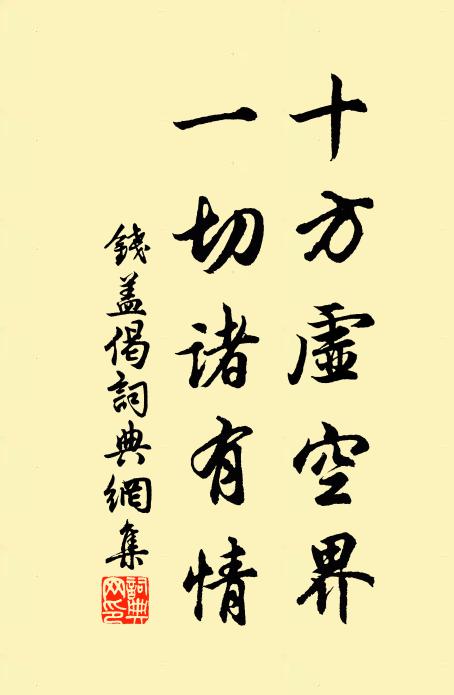 十方虛空界
一切诸有情
錢蓋偈詞典網集
詞典網印